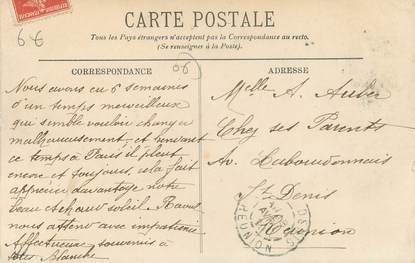 CARTE POSTALE
Tous les Pays étrangers n'acceptent pas la Correspondance au recto.
(Se renseigner à la Poste).
6€
06
CORRESPONDANCE
Nous avons eu 6 semaines
d'un temps merveilleux
qui semble vouloir changer
malheureusement, et pendant
ce temps à Paris il pleut
encore et toujours, cela fait
apprécier davantage notre
beau et chaud soleil. Raoul
nous attend avec impatience.
Affectueux souvenirs à
tous Blanche
ADRESSE
Melle A. Auber
Chez ses Parents
Av. Labourdonnais
St Denis
Réunion
ST DENIS
REUNION